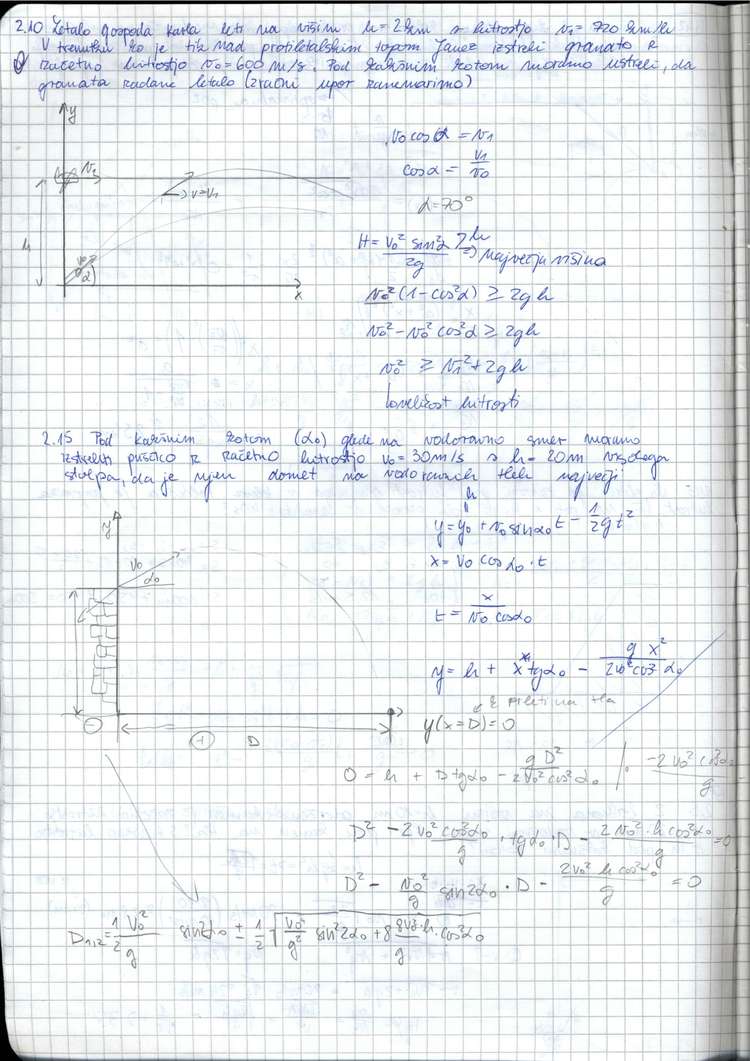 2.10 Letalo gospoda Katla leti na višini h = 2 km s hitrostjo v₁ = 720 km/h
V trenutku ko je tik nad protiletalskim topom Janez izstreli granato z
začetno hitrostjo v₀ = 600 m/s. Pod kakšnim kotom moramo ustreli, da
granata zadane letalo (zračni upor zanemarimo)
y
v₁
v = v₁
h
v₀
α
x
v₀ cos α = v₁
cos α = v₁/v₀
α = 70°
H = v₀² sin²α / 2g ≥ h ⇒ največja višina
v₀² (1 - cos²α) ≥ 2gh
v₀² - v₀² cos²α ≥ 2gh
v₀² ≥ v₁² + 2gh
velikost hitrosti
2.15 Pod kakšnim kotom (α₀) glede na vodoravno smer moramo
izstreliti puščico z začetno hitrostjo v₀ = 30 m/s s h = 20 m visokega
stolpa, da je njen domet na vodoravnih tleh največji
y
v₀
α₀
h
y = y₀ + v₀ sin α₀ t - 1/2 g t²
x = v₀ cos α₀ · t
t = x / v₀ cos α₀
y = h + x tg α₀ - g x² / 2v₀² cos² α₀
y(x = D) = 0
- + D
0 = h + D tg α₀ - g D² / 2v₀² cos² α₀ / · -2 v₀² cos² α₀ / g
D² - 2v₀² cos² α₀ / g · tg α₀ · D - 2v₀² · h cos² α₀ / g = 0
D² - v₀² / g sin 2α₀ · D - 2v₀² h cos² α₀ / g = 0
D₁,₂ = 1/2 v₀² / g sin 2α₀ ± 1/2 √( v₀² / g² sin² 2α₀ + 8 v₀² · h · cos² α₀ / g )